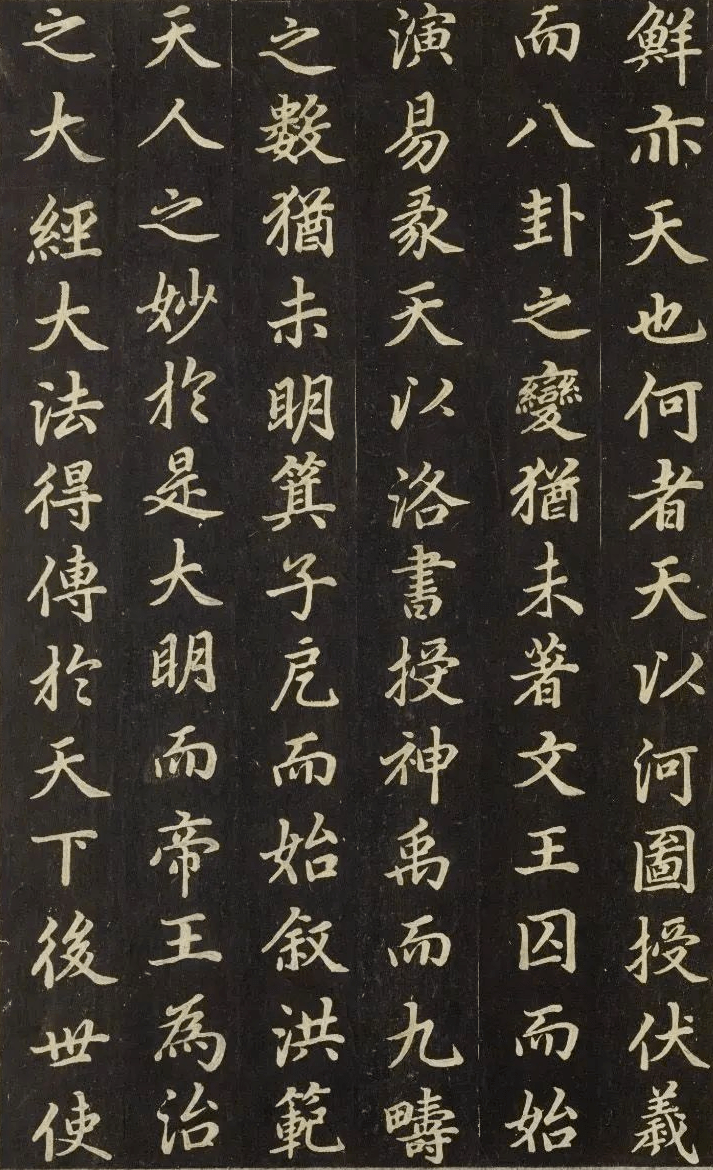 鮮亦天也何者天以河圖授伏羲
而八卦之變猶未著文王囚而始
演易彖天以洛書授神禹而九疇
之數猶未明箕子戹而始叙洪範
天人之妙於是大明而帝王為治
之大經大法得傳於天下後世使